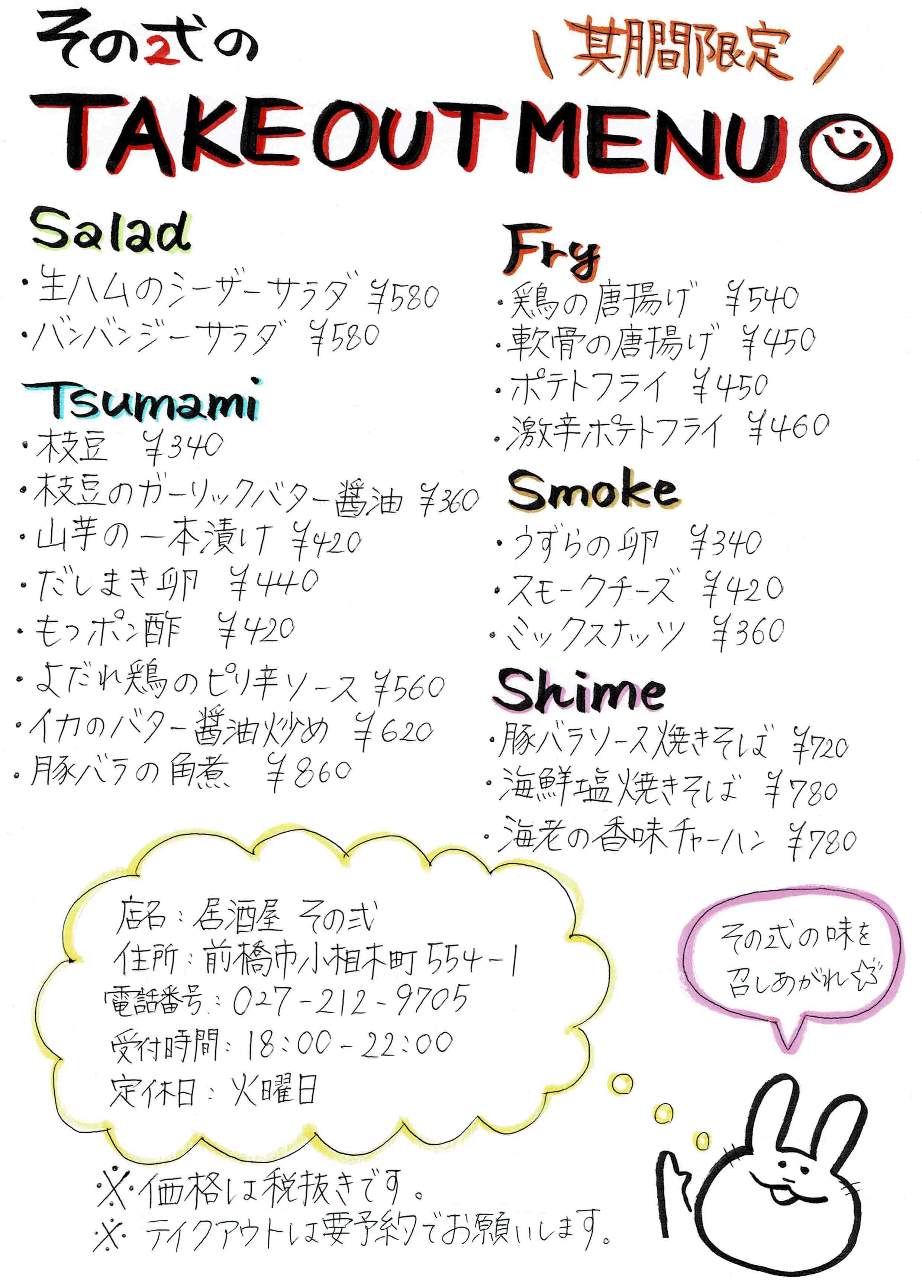 その弐の
其期間限定
TAKEOUT MENU
Salad
・生ハムのシーザーサラダ ¥580
・バンバンジーサラダ ¥580
Tsumami
・枝豆 ¥340
・枝豆のガーリックバター醤油 ¥360
・山芋の一本漬け ¥420
・だしまき卵 ¥440
・もつポン酢 ¥420
・よだれ鶏のピリ辛ソース ¥560
・イカのバター醤油炒め ¥620
・豚バラの角煮 ¥860
Fry
・鶏の唐揚げ ¥540
・軟骨の唐揚げ ¥450
・ポテトフライ ¥450
・激辛ポテトフライ ¥460
Smoke
・うずらの卵 ¥340
・スモークチーズ ¥420
・ミックスナッツ ¥360
Shime
・豚バラソース焼きそば ¥720
・海鮮塩焼きそば ¥780
・海老の香味チャーハン ¥780
店名：居酒屋 その弐
住所：前橋市小相木町554-1
電話番号：027-212-9705
受付時間：18:00-22:00
定休日：火曜日
その弐の味を
召しあがれ☆
※価格は税抜きです。
※テイクアウトは要予約でお願いします。